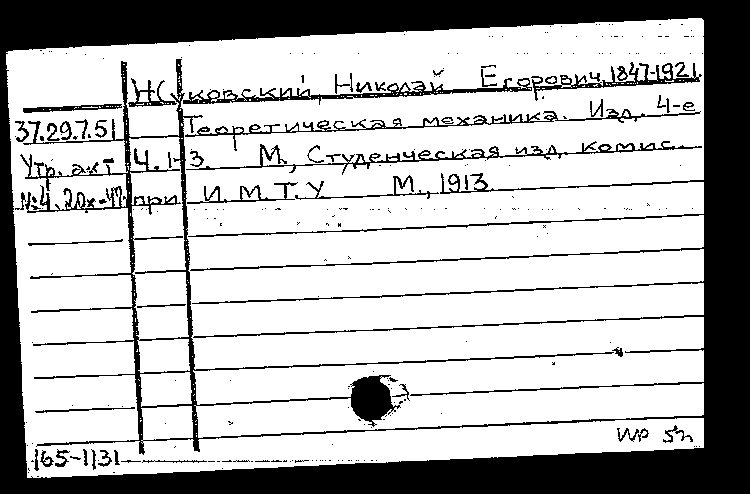 Жуковский, Николай Егорович, 1847-1921.
37.29.7.51 Теоретическая механика. Изд. 4-е
Утр. акт Ч. 1-3. М., Студенческая изд. комис.
№4. 2 Ох-47. при И. М. Т. У М., 1913.
165-1131